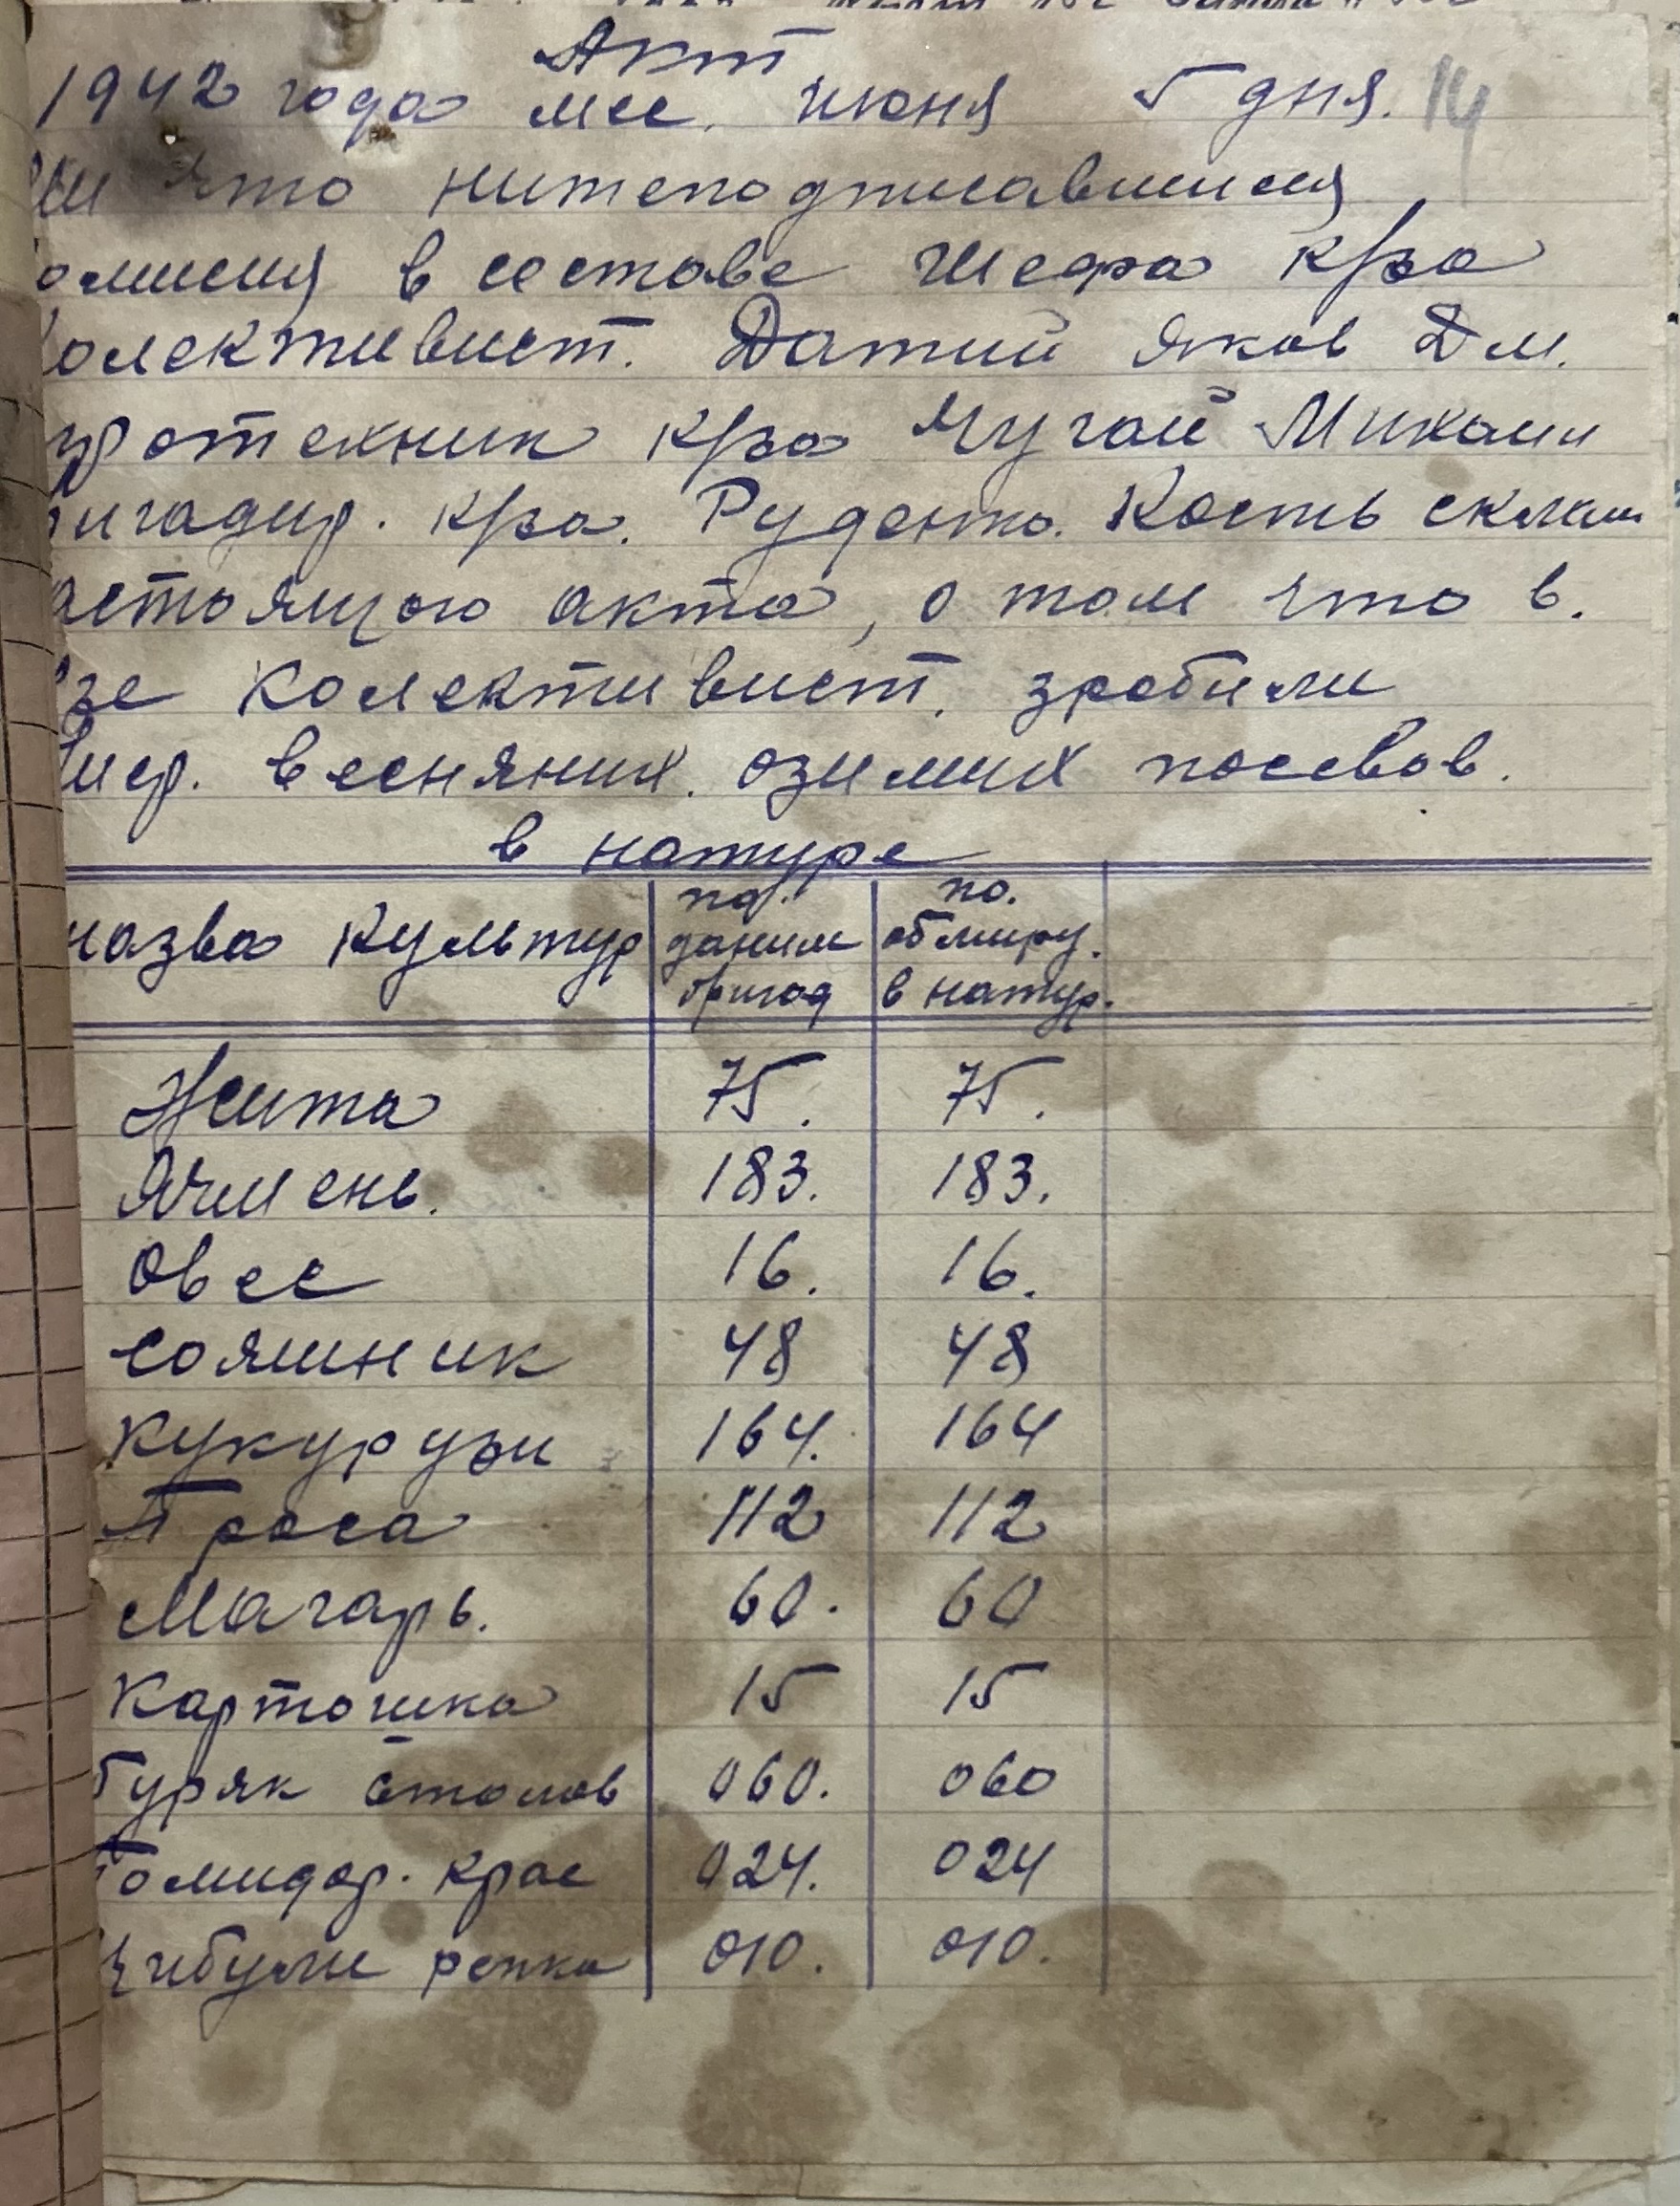 Акт
1942 года мес. июня 5 дня. 14
что нижеподписавшиися
омисия в состове Шефа К/за
олективист. Датий Яков Дм.
гротехник к/за Чугай Михаил
ригадир. к/за. Руденко. Кость склали
астоящою акта, о том что в.
/зе Колективист. зробили
мір. весняних. озимих посевов.
в натуре
назва Культур
по. даним бригад
по. обмиру. в натур.
Жита 75. 75.
Ячмень. 183. 183.
Овес 16. 16.
сояшник 48 48
Кукурузи 164. 164
Проса 112 112
Магарь. 60. 60
Картошка 15 15
Буряк столов 060. 060
Помидор. крас 024. 024
Цибули репка 010. 010.